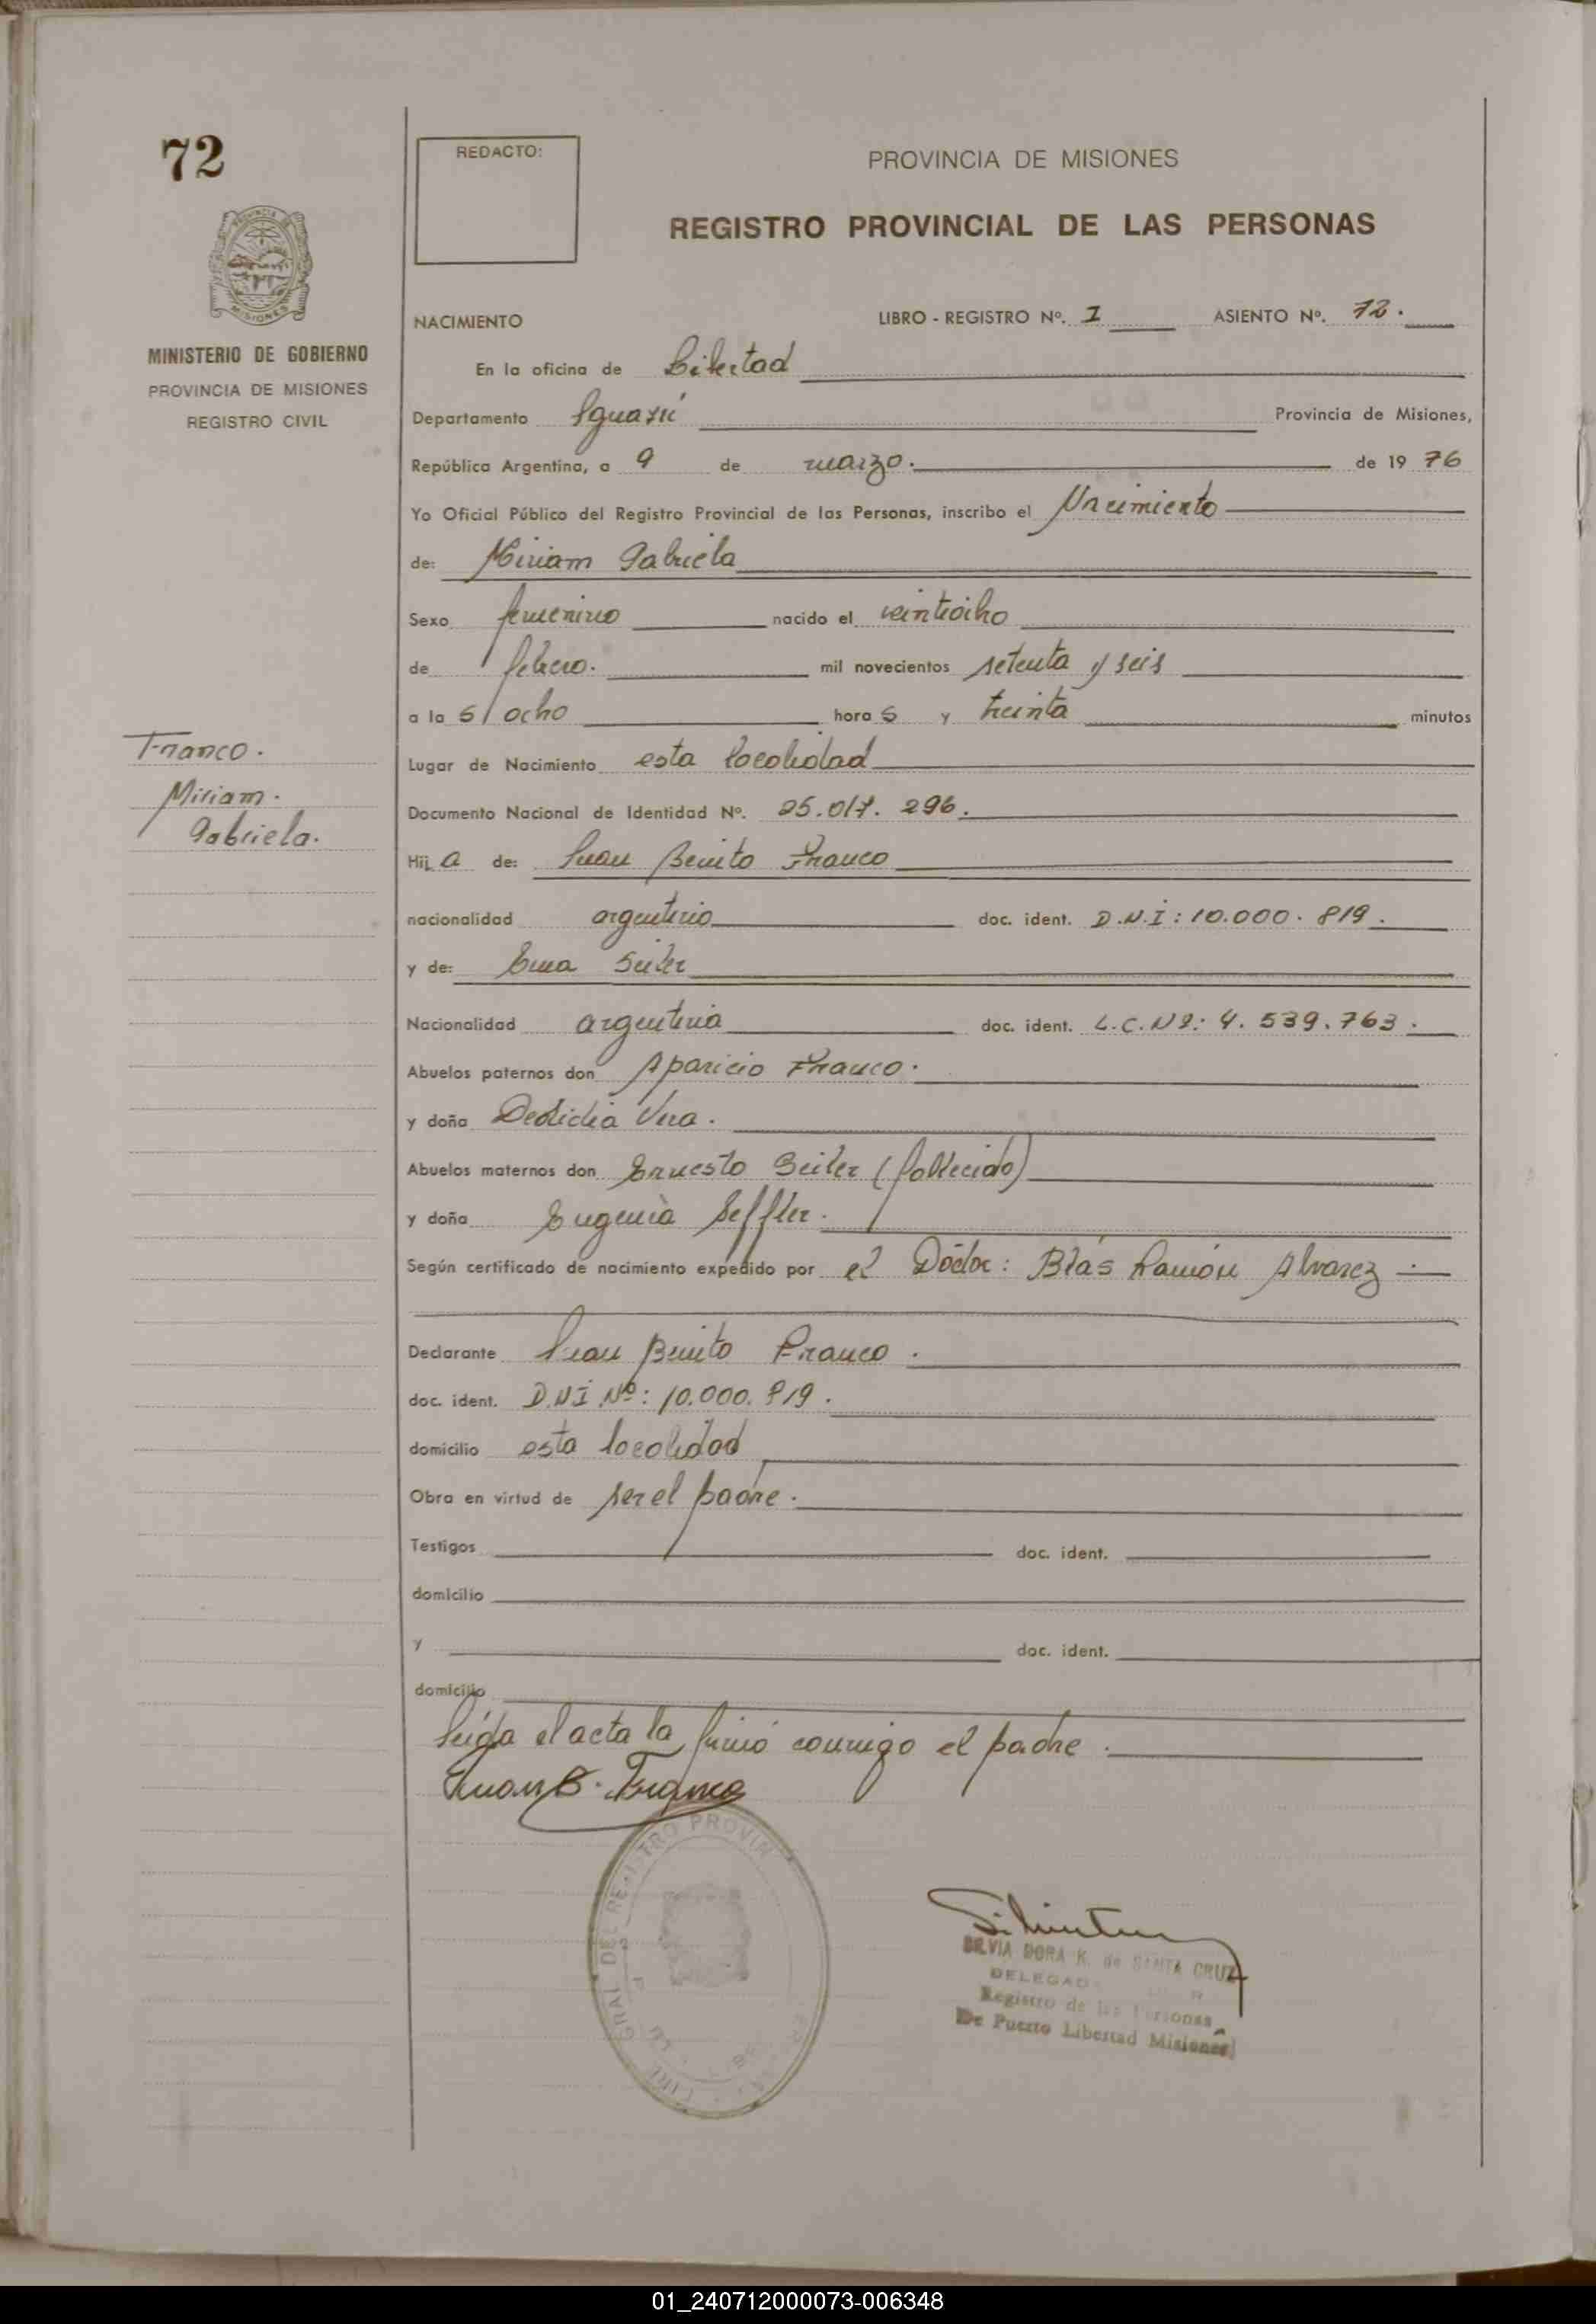 72
REDACTO:
PROVINCIA DE MISIONES
REGISTRO PROVINCIAL DE LAS PERSONAS
MISIONES
MINISTERIO DE GOBIERNO
PROVINCIA DE MISIONES
REGISTRO CIVIL
NACIMIENTO LIBRO - REGISTRO Nº. I ASIENTO Nº. 72.
En la oficina de Libertad
Departamento Iguazú Provincia de Misiones,
República Argentina, a 9 de marzo. de 1976
Yo Oficial Público del Registro Provincial de las Personas, inscribo el Nacimiento
de: Miriam Gabriela
Sexo femenino nacido el veintiocho
de febrero. mil novecientos setenta y seis
a las ocho horas y treinta minutos
Franco.
Miriam.
Gabriela.
Lugar de Nacimiento esta localidad
Documento Nacional de Identidad Nº. 25.017.296.
Hija de: Juan Benito Franco
nacionalidad argentino doc. ident. D.N.I: 10.000.819.
y de: Ema Seiler
Nacionalidad argentina doc. ident. L.C.Nº: 4.539.763.
Abuelos paternos don Aparicio Franco.
y doña Vera.
Abuelos maternos don Ernesto Seiler (fallecido)
y doña Eugenia Seffler.
Según certificado de nacimiento expedido por el Doctor: Blás Ramón Alvarez
Declarante Juan Benito Franco.
doc. ident. D.N.I Nº: 10.000.819.
domicilio esta localidad
Obra en virtud de ser el padre.
Testigos doc. ident.
domicilio
y doc. ident.
domicilio
Leída el acta la firmó conmigo el padre.
Juan B. Franco
SILVIA DORA K. de SANTA CRUZ
Registro de las Personas
De Puerto Libertad Misiones
01_240712000073-006348